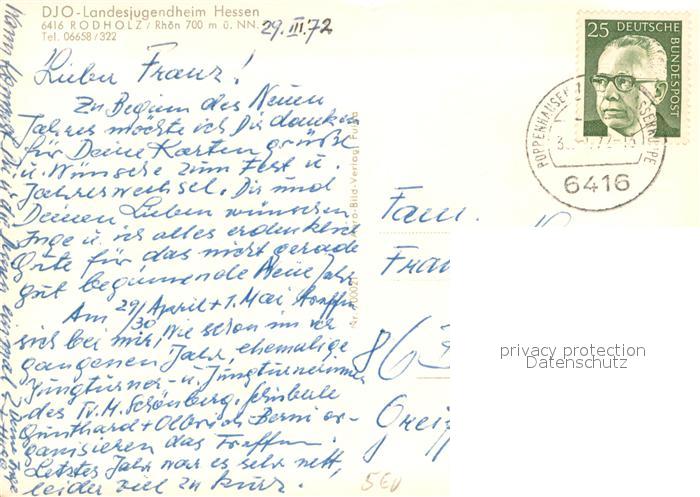 DJO-Landesjugendheim Hessen
6416 RODHOLZ / Rhön 700 m ü. NN.
Tel. 06658/322
29. III. 72
25 DEUTSCHE BUNDESPOST
POPPENHAUSEN WASSERKUPPE
6416
Lieber Franz!
Zu Beginn des Neuen
Jahres möchte ich Dir danken
für Deine Karten grüße
u. Wünsche zum Fest u.
Jahreswechsel. Dir und
Deinen Lieben wünschen
Inge u. ich alles erdenklich
Gute für das nicht gerade
gut beginnende Neue Jahr
Am 29/30 April + 1. Mai
sich bei mir, wie schon im
gangenen Jahr, ehemalige
Jungturner- u. Jungturnerinnen
des Tv. M. Schönberg.
Gunthard + Olbrich Berni or-
ganisieren das Treffen.
Letztes Jahr war es sehr nett,
leider viel zu kurz.
Fam.
Fran
86
Greiz
-Bild-Verlag Fulda
privacy protection
Datenschutz